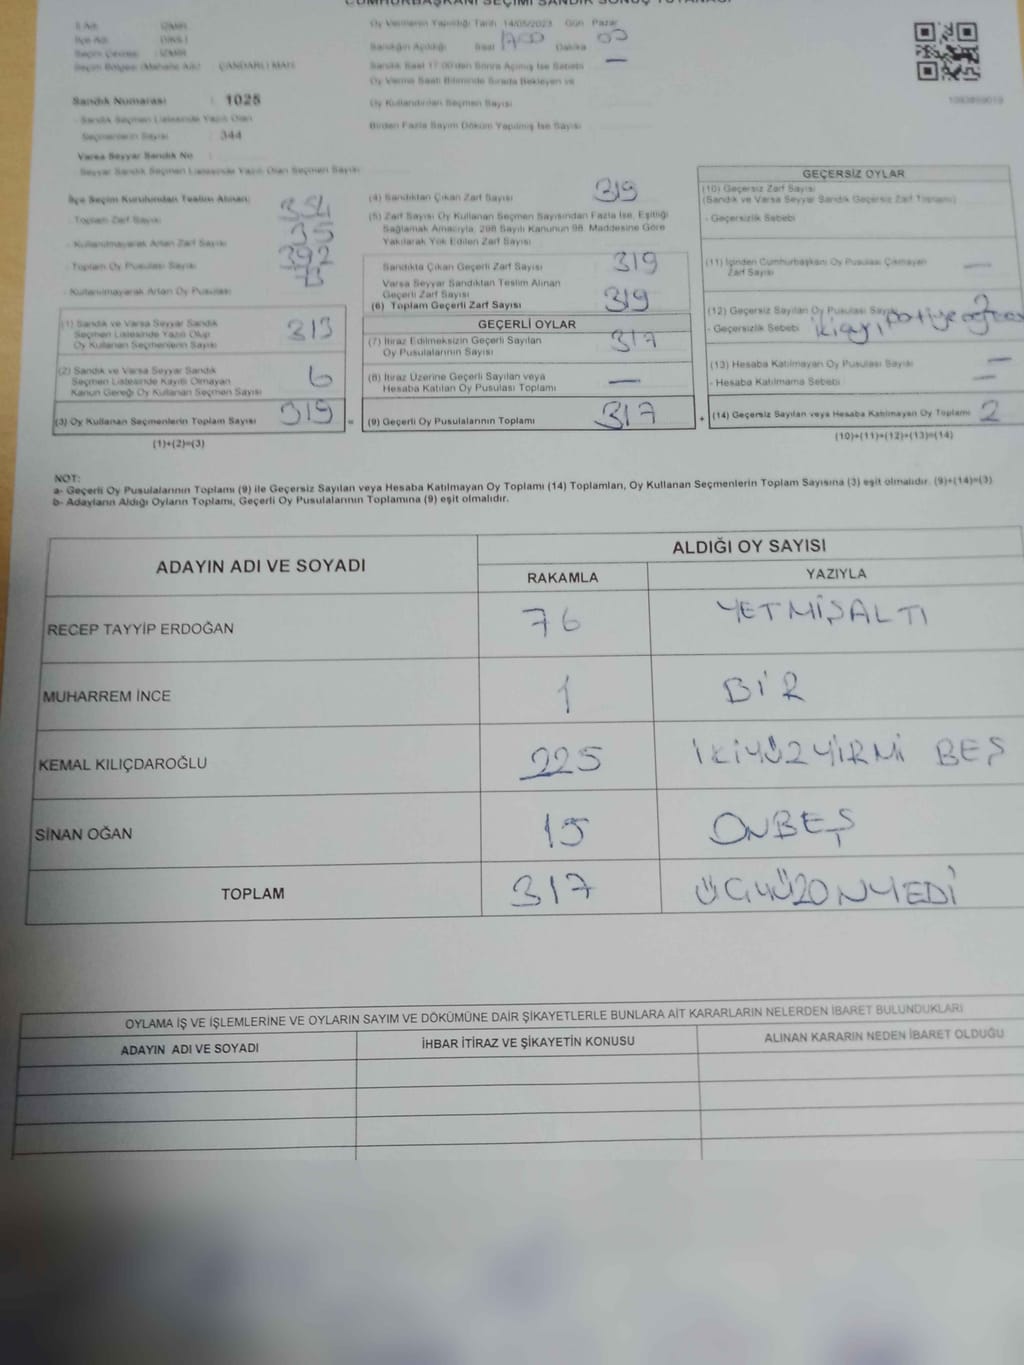 CUMHURBAŞKANI SEÇİMİ SANDIK SONUÇ TUTANAĞI
İl Adı : İZMİR
İlçe Adı : DİKİLİ
Seçim Çevresi : İZMİR
Seçim Bölgesi (Mahalle Adı) : ÇANDARLI MAH.
Sandık Numarası : 1025
- Sandık Seçmen Listesinde Yazılı Olan
Seçmenlerin Sayısı : 344
Varsa Seyyar Sandık No
- Seyyar Sandık Seçmen Listesinde Yazılı Olan Seçmen Sayısı
Oy Vermenin Yapıldığı Tarih 14/05/2023 Gün Pazar
Sandığın Açıldığı Saat 1700 Dakika 00
Sandık Saat 17:00'den Sonra Açılmış İse Sebebi —
Oy Verme Saati Bitiminde Sırada Bekleyen ve
Oy Kullandırılan Seçmen Sayısı
Birden Fazla Sayım Döküm Yapılmış İse Sayısı
İlçe Seçim Kurulundan Teslim Alınan;
- Toplam Zarf Sayısı 354
- Kullanılmayarak Artan Zarf Sayısı 35
- Toplam Oy Pusulası Sayısı 392
- Kullanılmayarak Artan Oy Pusulası
(1) Sandık ve Varsa Seyyar Sandık
Seçmen Listesinde Yazılı Olup
Oy Kullanan Seçmenlerin Sayısı 313
(2) Sandık ve Varsa Seyyar Sandık
Seçmen Listesinde Kayıtlı Olmayan
Kanun Gereği Oy Kullanan Seçmen Sayısı 6
(3) Oy Kullanan Seçmenlerin Toplam Sayısı 319
(1)+(2)=(3)
(4) Sandıktan Çıkan Zarf Sayısı 319
(5) Zarf Sayısı Oy Kullanan Seçmen Sayısından Fazla İse, Eşitliği
Sağlamak Amacıyla, 298 Sayılı Kanunun 98. Maddesine Göre
Yakılarak Yok Edilen Zarf Sayısı
Sandıkta Çıkan Geçerli Zarf Sayısı 319
Varsa Seyyar Sandıktan Teslim Alınan
Geçerli Zarf Sayısı
(6) Toplam Geçerli Zarf Sayısı 319
GEÇERLİ OYLAR
(7) İtiraz Edilmeksizin Geçerli Sayılan
Oy Pusulalarının Sayısı 317
(8) İtiraz Üzerine Geçerli Sayılan veya
Hesaba Katılan Oy Pusulası Toplamı —
= (9) Geçerli Oy Pusulalarının Toplamı 317
GEÇERSİZ OYLAR
(10) Geçersiz Zarf Sayısı
(Sandık ve Varsa Seyyar Sandık Geçersiz Zarf Toplamı)
- Geçersizlik Sebebi
(11) İçinden Cumhurbaşkanı Oy Pusulası Çıkmayan
Zarf Sayısı —
(12) Geçersiz Sayılan Oy Pusulası Sayısı 2
- Geçersizlik Sebebi
(13) Hesaba Katılmayan Oy Pusulası Sayısı —
- Hesaba Katılmama Sebebi —
+ (14) Geçersiz Sayılan veya Hesaba Katılmayan Oy Toplamı 2
(10)+(11)+(12)+(13)=(14)
NOT:
a- Geçerli Oy Pusulalarının Toplamı (9) ile Geçersiz Sayılan veya Hesaba Katılmayan Oy Toplamı (14) Toplamları, Oy Kullanan Seçmenlerin Toplam Sayısına (3) eşit olmalıdır. (9)+(14)=(3)
b- Adayların Aldığı Oyların Toplamı, Geçerli Oy Pusulalarının Toplamına (9) eşit olmalıdır.
ADAYIN ADI VE SOYADI
ALDIĞI OY SAYISI
RAKAMLA YAZIYLA
RECEP TAYYİP ERDOĞAN 76 YETMİŞALTI
MUHARREM İNCE 1 BİR
KEMAL KILIÇDAROĞLU 225 İKİYÜZYİRMİ BEŞ
SİNAN OĞAN 15 ONBEŞ
TOPLAM 317 ÜÇYÜZONYEDİ
OYLAMA İŞ VE İŞLEMLERİNE VE OYLARIN SAYIM VE DÖKÜMÜNE DAİR ŞİKAYETLERLE BUNLARA AİT KARARLARIN NELERDEN İBARET BULUNDUKLARI
ADAYIN ADI VE SOYADI İHBAR İTİRAZ VE ŞİKAYETİN KONUSU ALINAN KARARIN NEDEN İBARET OLDUĞU